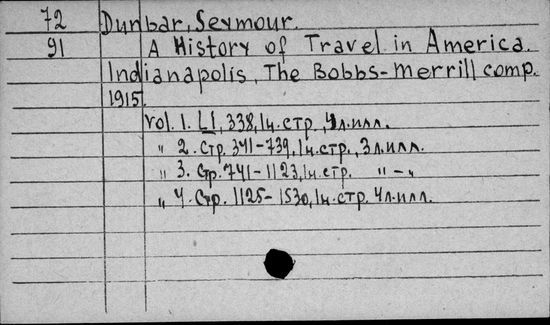 72 Dunbar, Seymour.
91 A History of Travel in America.
Indianapolis, The Bobbs-Merrill comp.
1915.
Vol. 1. LI, 338, 1ч. стр., 4л. илл.
" 2. Стр. 341-739, 1ч. стр., 3л. илл.
" 3. Стр. 741-1123, 1ч. стр. " - "
" 4. Стр. 1125-1530, 1ч. стр. 4л. илл.